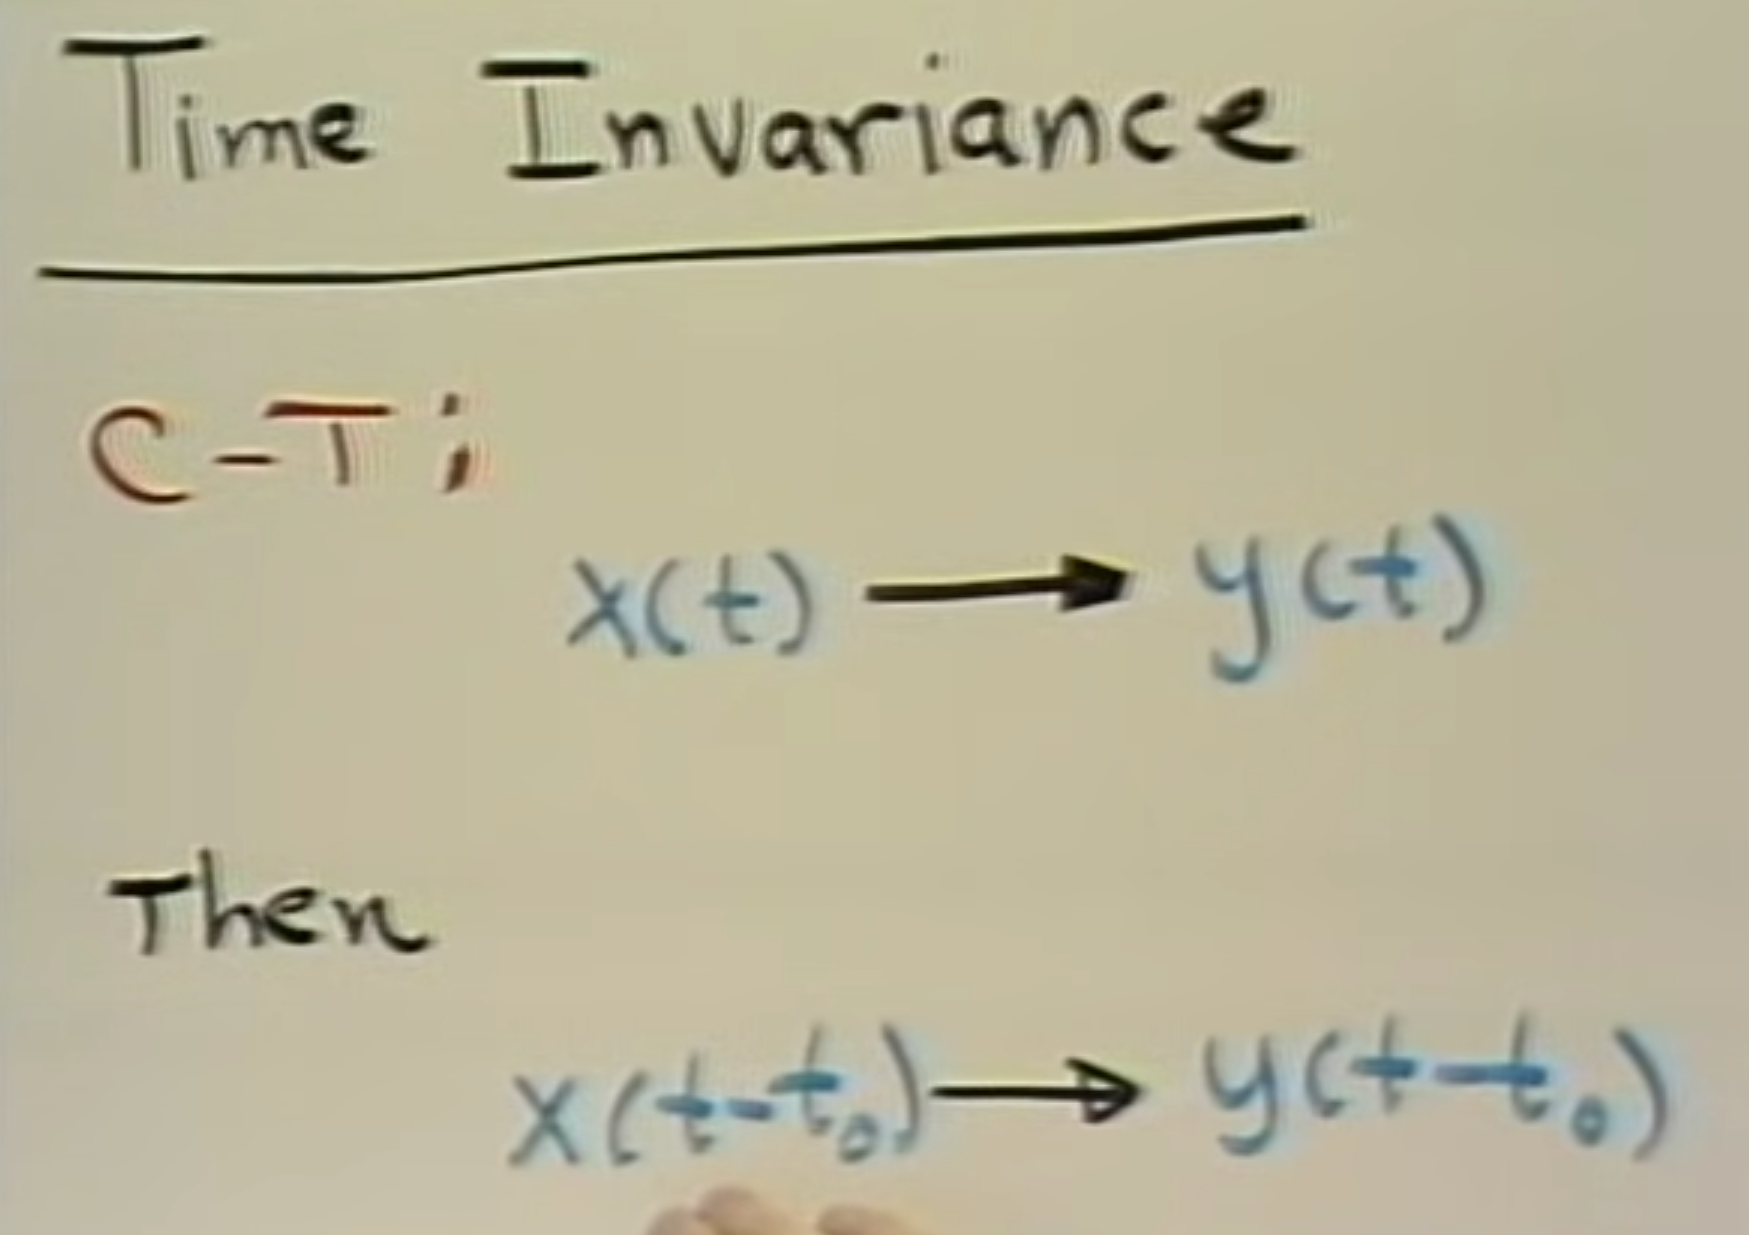 Time Invariance
C-T:
x(t) → y(t)
Then
x(t-t₀) → y(t-t₀)